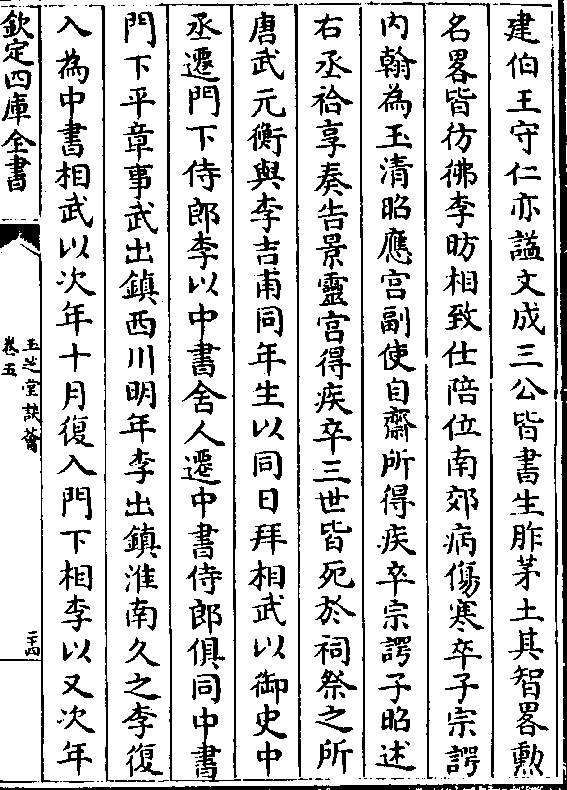 建伯王守仁亦諡文成三公皆書生胙茅土其智畧勲
名畧皆彷彿李昉相致仕陪位南郊病傷寒卒子宗諤
内翰為玉清昭應宫副使自齋所得疾卒宗諤子昭述
右丞祫享奏告景靈宫得疾卒三世皆死於祠祭之所
唐武元衡與李吉甫同年生以同日拜相武以御史中
丞遷門下侍郎李以中書舍人遷中書侍郎俱同中書
門下平章事武出鎮西川明年李出鎮淮南久之李復
入為中書相武以次年十月復入門下相李以又次年
欽定四庫全書
玉芝堂談薈
卷五
二十四